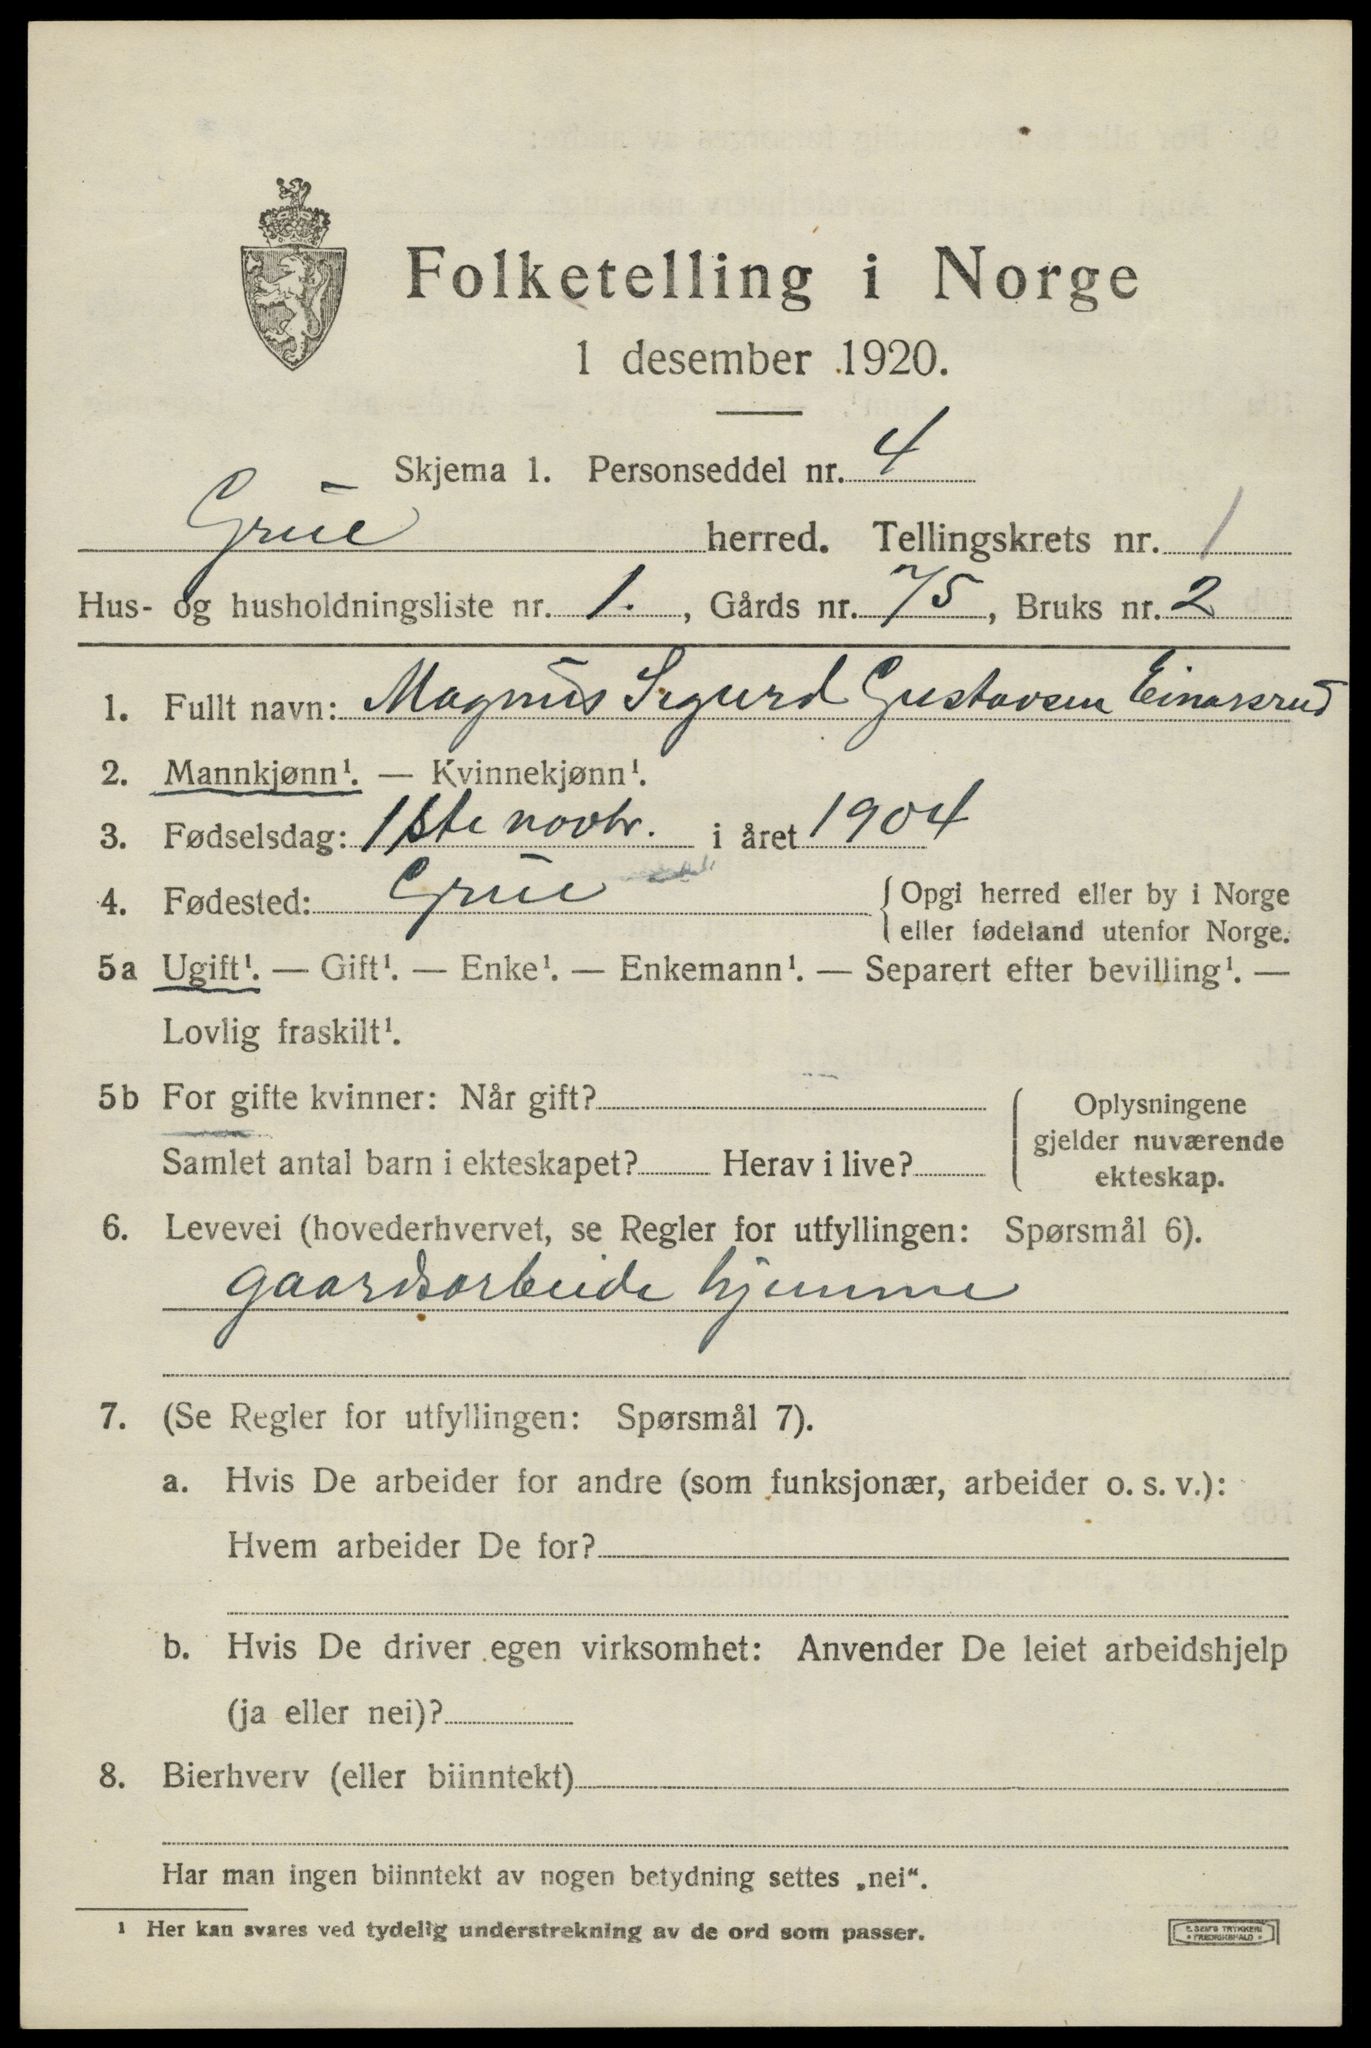 Folketelling i Norge
1 desember 1920.
Skjema 1. Personseddel nr. 4
Grue herred. Tellingskrets nr. 1
Hus- og husholdningsliste nr. 1. , Gårds nr. 75, Bruks nr. 2
1. Fullt navn: Magnus Sigurd Gustavsen Einarsrud
2. Mannkjønn¹. — Kvinnekjønn¹.
3. Fødselsdag: 1ste novbr. i året 1904
4. Fødested: Grue { Opgi herred eller by i Norge
eller fødeland utenfor Norge.
5a Ugift¹. — Gift¹. — Enke¹. — Enkemann¹. — Separert efter bevilling¹. —
Lovlig fraskilt¹.
5b For gifte kvinner: Når gift?
Samlet antal barn i ekteskapet? Herav i live?
Oplysningene
gjelder nuværende
ekteskap.
6. Levevei (hovederhvervet, se Regler for utfyllingen: Spørsmål 6).
gaardsarbeide hjemme
7. (Se Regler for utfyllingen: Spørsmål 7).
a. Hvis De arbeider for andre (som funksjonær, arbeider o. s. v.):
Hvem arbeider De for?
b. Hvis De driver egen virksomhet: Anvender De leiet arbeidshjelp
(ja eller nei)?
8. Bierhverv (eller biinntekt)
Har man ingen biinntekt av nogen betydning settes „nei“.
¹ Her kan svares ved tydelig understrekning av de ord som passer.
E. SEM'S TRYKKERI
FREDRIKSHALD